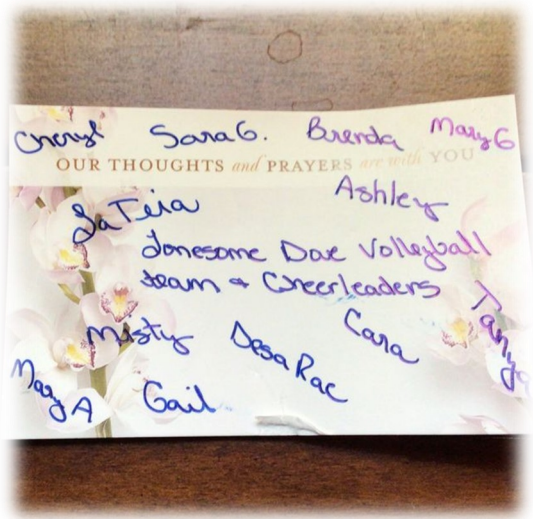 Cheryl Sara G. Brenda Mary G
OUR THOUGHTS and PRAYERS are with YOU
Ashley
LaTeia
Lonesome Dove Volleyball
team & Cheerleaders
Tanya
Cara
Misty
DesaRae
Mary A
Gail